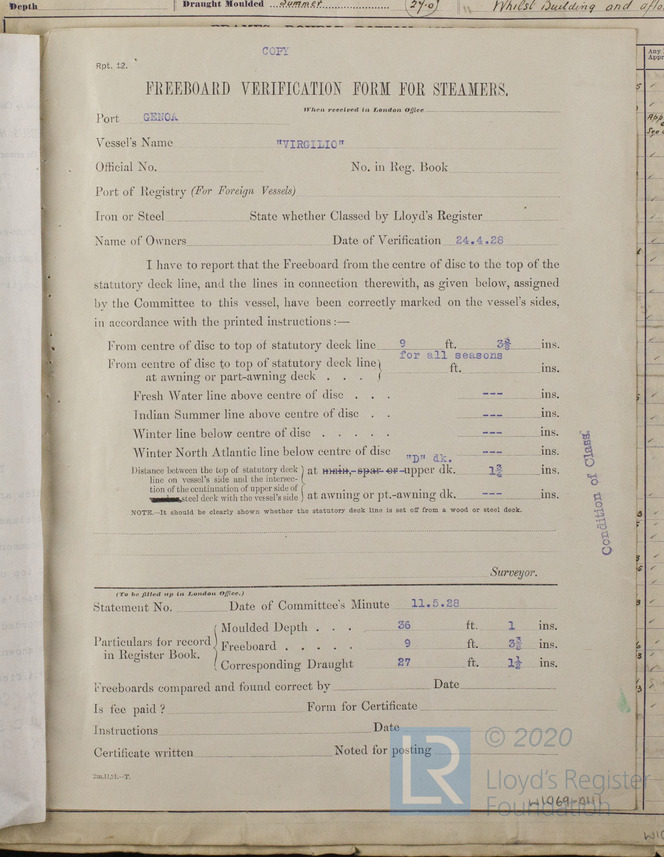 Depth
Draught Moulded Summer (27.0) Whilst Building and
COPY
Rpt. 12.
FREEBOARD VERIFICATION FORM FOR STEAMERS.
When received in London Office
Port GENOA
Vessel's Name "VIRGILIO"
Official No. No. in Reg. Book
Port of Registry (For Foreign Vessels)
Iron or Steel State whether Classed by Lloyd's Register
Name of Owners Date of Verification 24.4.28
I have to report that the Freeboard from the centre of disc to the top of the
statutory deck line, and the lines in connection therewith, as given below, assigned
by the Committee to this vessel, have been correctly marked on the vessel's sides,
in accordance with the printed instructions :—
From centre of disc to top of statutory deck line 9 ft. 3¾ ins.
for all seasons
From centre of disc to top of statutory deck line
at awning or part-awning deck . . . ft. ins.
Fresh Water line above centre of disc . . . --- ins.
Indian Summer line above centre of disc . . --- ins.
Winter line below centre of disc . . . . . --- ins.
Winter North Atlantic line below centre of disc --- ins.
"D" dk.
Distance between the top of statutory deck
line on vessel's side and the intersec-
tion of the continuation of upper side of
steel deck with the vessel's side
at main, spar or upper dk. 1¾ ins.
at awning or pt.-awning dk. --- ins.
NOTE.—It should be clearly shown whether the statutory deck line is set off from a wood or steel deck.
Condition of Class.
Surveyor.
(To be filled up in London Office.)
Statement No. Date of Committee's Minute 11.5.28
Particulars for record
in Register Book.
Moulded Depth . . . 36 ft. 1 ins.
Freeboard . . . . . 9 ft. 3¾ ins.
Corresponding Draught 27 ft. 1½ ins.
Freeboards compared and found correct by Date
Is fee paid ? Form for Certificate
Instructions Date
Certificate written Noted for posting
2m,11,21.—T.
LR
© 2020
Lloyd's Register
Foundation